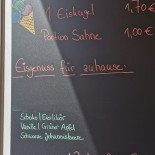 1 Eiskugel 1,70 €
Portion Sahne 1,00 €
Eisgenuss für zuhause:
Schoko/Eierlikör
Vanille/Grüner Apfel
Johannisbeere